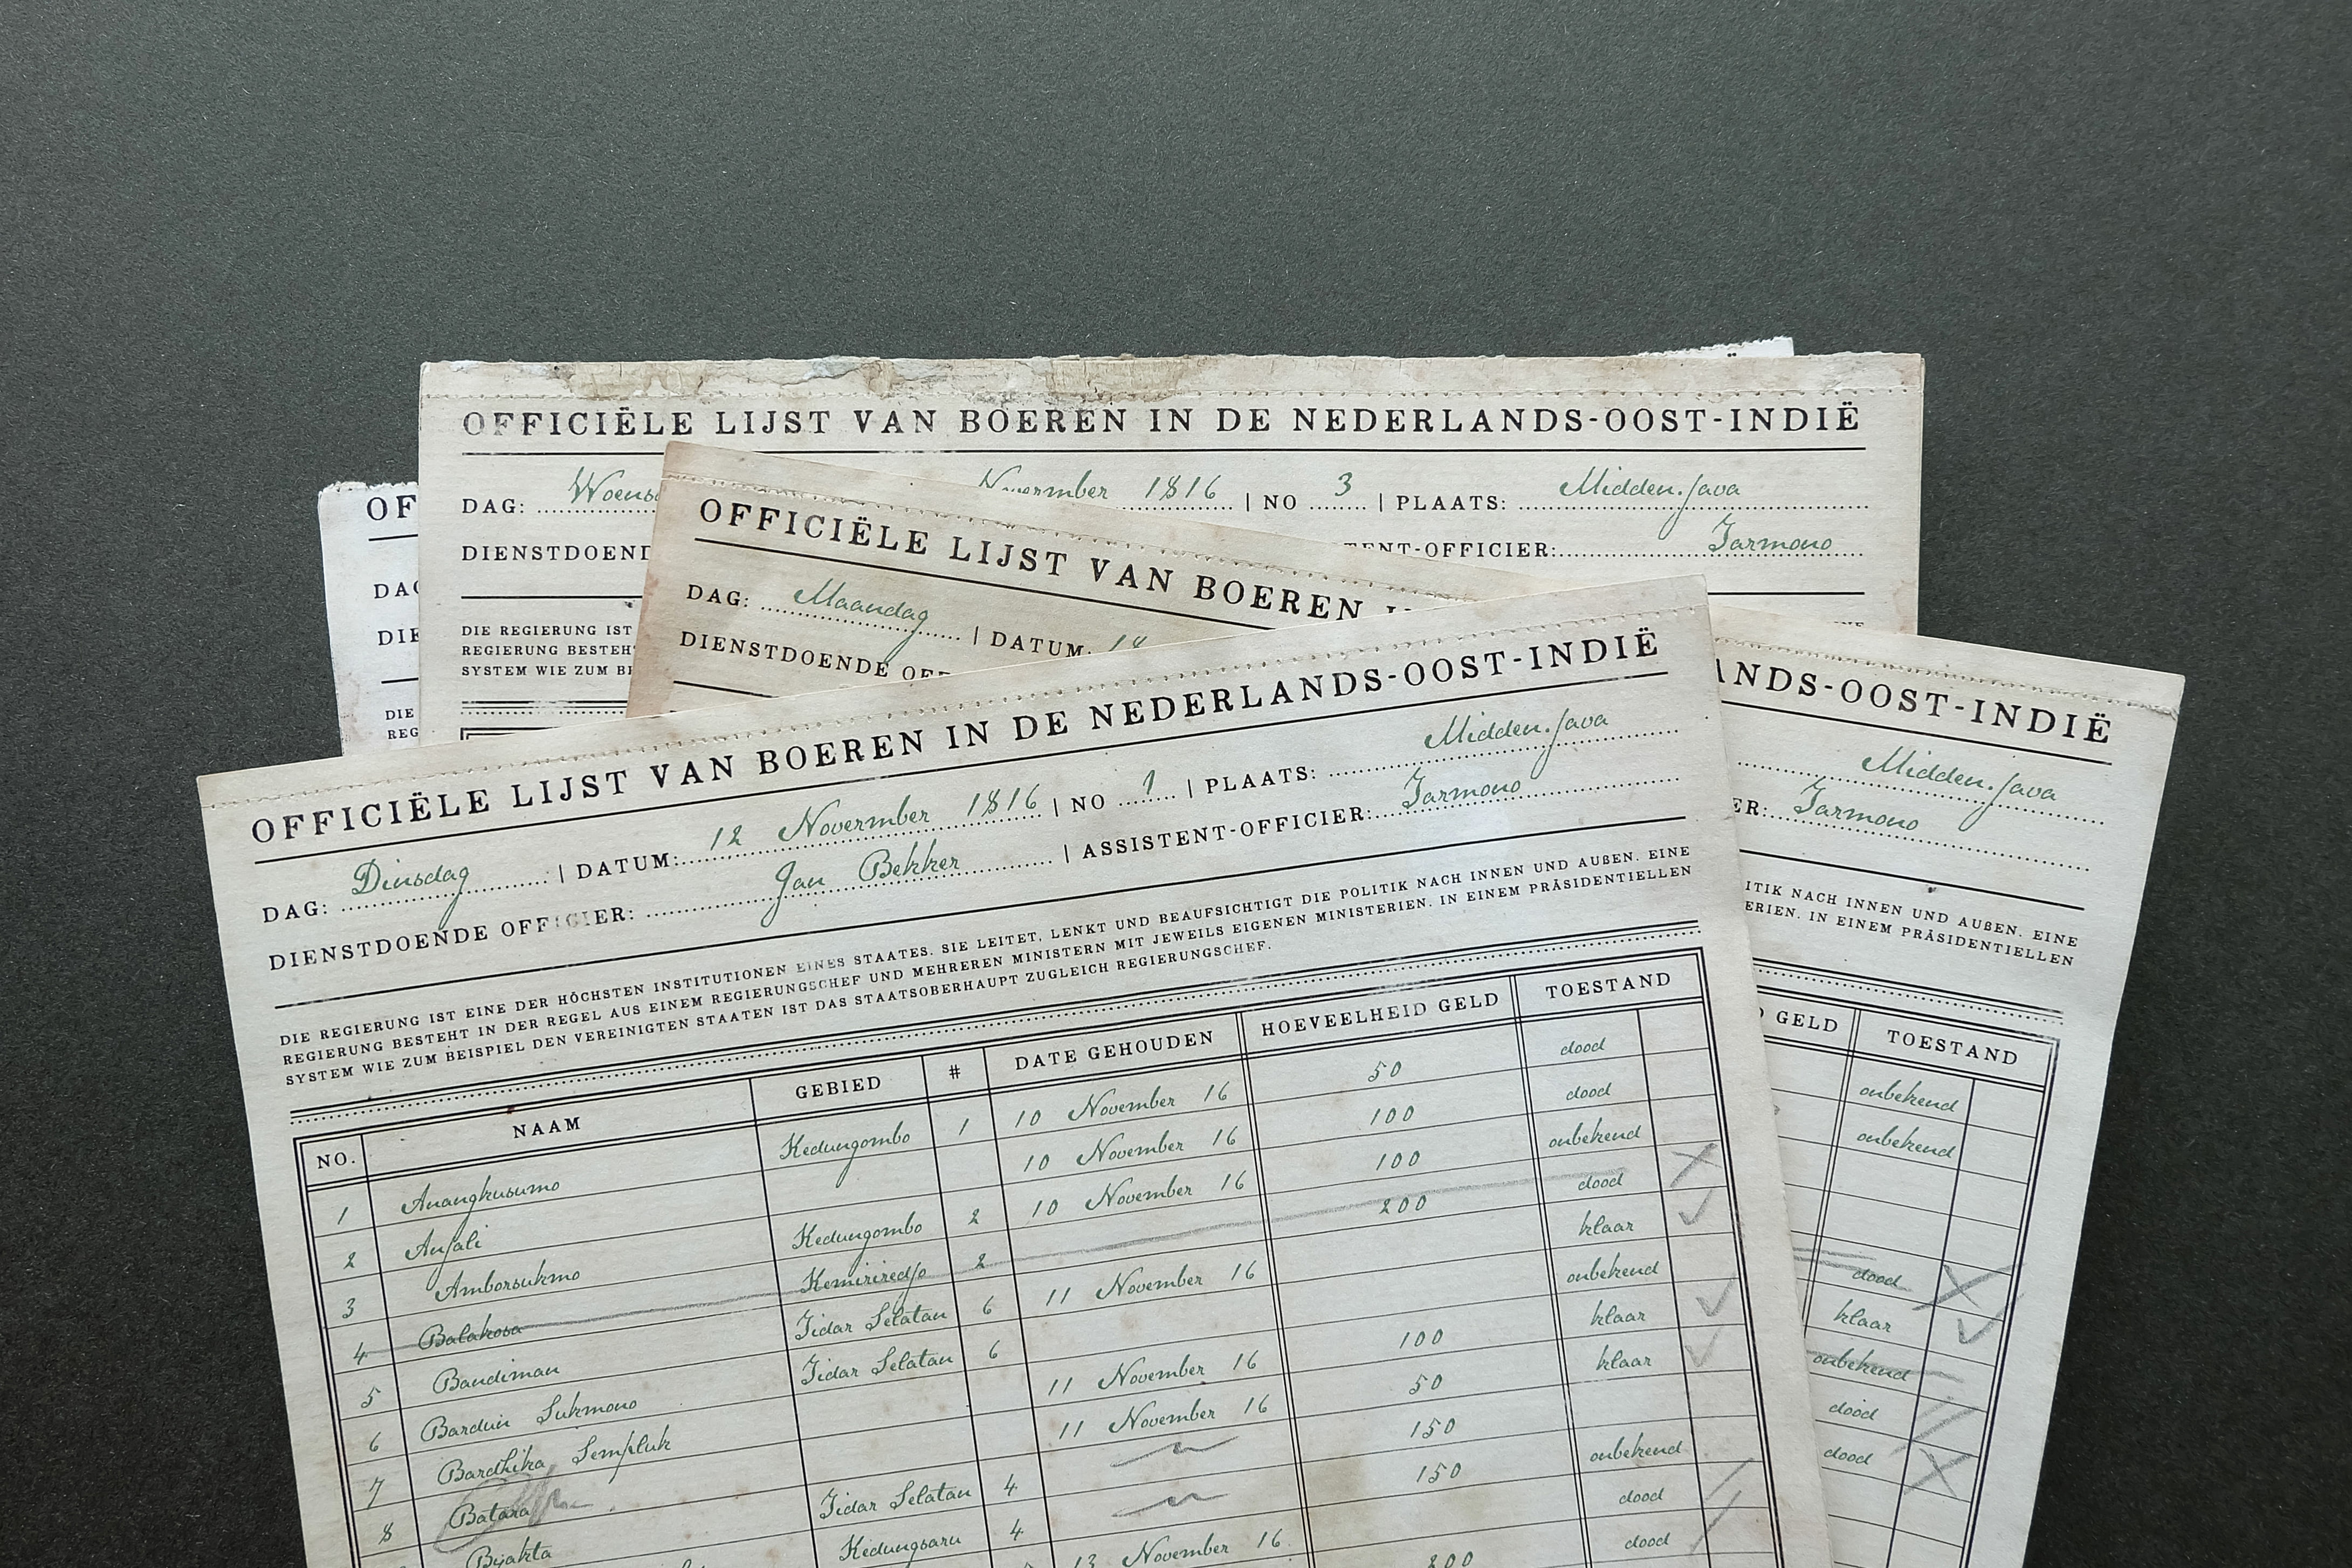 OFFICIËLE LIJST VAN BOEREN IN DE NEDERLANDS-OOST-INDIË
DAG: November 1816 | NO 3 | PLAATS: Midden-Java
DIENSTDOEND Tarmono
DIE REGIERUNG IST
REGIERUNG BESTEHT
SYSTEM WIE ZUM BE
OF
DAG
DIE
DIE
REG
OFFICIËLE LIJST VAN BOEREN
DAG: Maandag | DATUM:
DIENSTDOENDE OFF
ANDS-OOST-INDIË
Midden-Java
ER: Tarmono
ITIK NACH INNEN UND AUßEN. EINE
ERIEN. IN EINEM PRÄSIDENTIELLEN
GELD TOESTAND
onbekend
onbekend
dood
klaar
onbekend
dood
dood
OFFICIËLE LIJST VAN BOEREN IN DE NEDERLANDS-OOST-INDIË
DAG: Dinsdag | DATUM: 12 Novermber 1816 | NO 1 | PLAATS: Midden-Java
DIENSTDOENDE OFFICIER: Jan Bekker | ASSISTENT-OFFICIER: Tarmono
DIE REGIERUNG IST EINE DER HÖCHSTEN INSTITUTIONEN EINES STAATES. SIE LEITET, LENKT UND BEAUFSICHTIGT DIE POLITIK NACH INNEN UND AUßEN. EINE
REGIERUNG BESTEHT IN DER REGEL AUS EINEM REGIERUNGSCHEF UND MEHREREN MINISTERN MIT JEWEILS EIGENEN MINISTERIEN. IN EINEM PRÄSIDENTIELLEN
SYSTEM WIE ZUM BEISPIEL DEN VEREINIGTEN STAATEN IST DAS STAATSOBERHAUPT ZUGLEICH REGIERUNGSCHEF.
NO. NAAM GEBIED # DATE GEHOUDEN HOEVEELHEID GELD TOESTAND
1 Anangkusumo Kedungombo 1 10 November 16 50 dood
2 Anjali 10 November 16 100 dood
3 Amborsukmo Kedungombo 2 10 November 16 100 onbekend
4 Balakosa Kemiriredjo 2 200 dood
5 Bandiman Tidar Selatan 6 11 November 16 klaar
6 Barduin Sukmono Tidar Selatan 6 onbekend
7 Bardhika Sempluk 11 November 16 100 klaar
8 Batara 11 November 16 50 klaar
Bijakta Tidar Selatan 4 150
Kedungsaru 4 150 onbekend
13 November 16 200 dood
dood